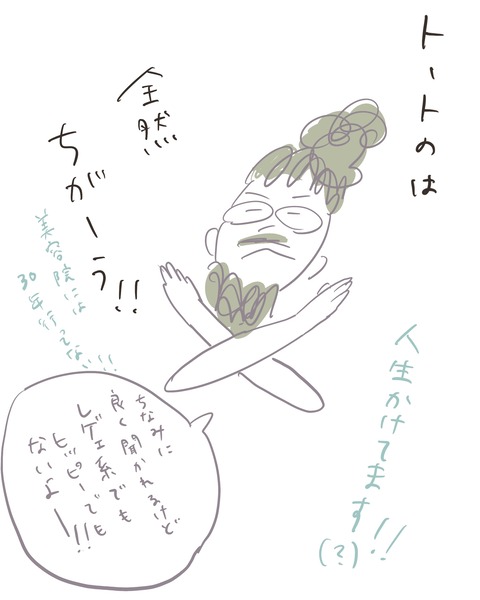 トートのは
全然
ちがーう!!
美容院には
30年行ってない!!
人生かけてます!!
(?)
ちなみに
良く聞かれるけど
レゲエ系でも
ヒッピーでも
ないよー!!